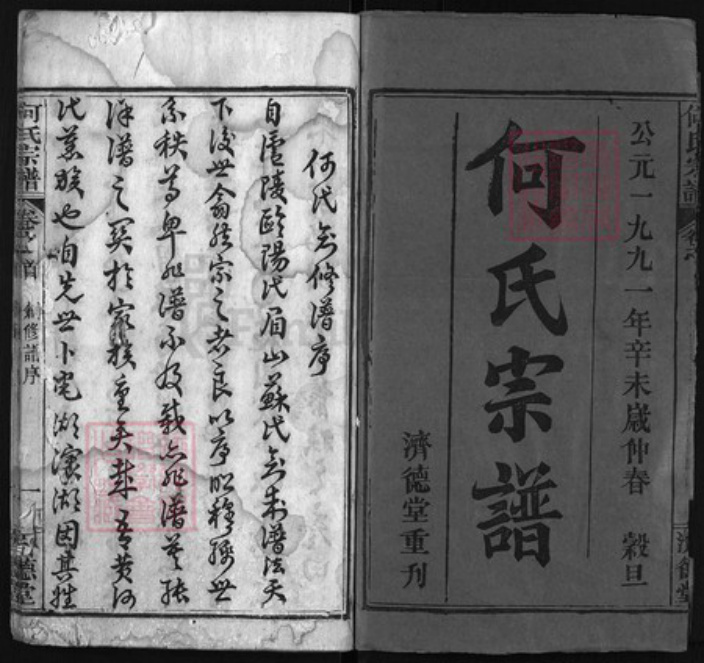 公元一九九一年辛未歲仲春 穀旦
何氏宗譜
濟德堂重刊
何氏創修譜序
自廬陵歐陽氏眉山蘇氏創爲譜法天
下後世翕然宗之者良以序昭穆綿世
系秩尊卑非譜不及載亦非譜莫聯
詳譜之關於家族重矣哉吾黃河
氏舊族也自先世卜宅湖濱湖因其姓
何氏宗譜
卷之首
創修譜序
一
濟德堂